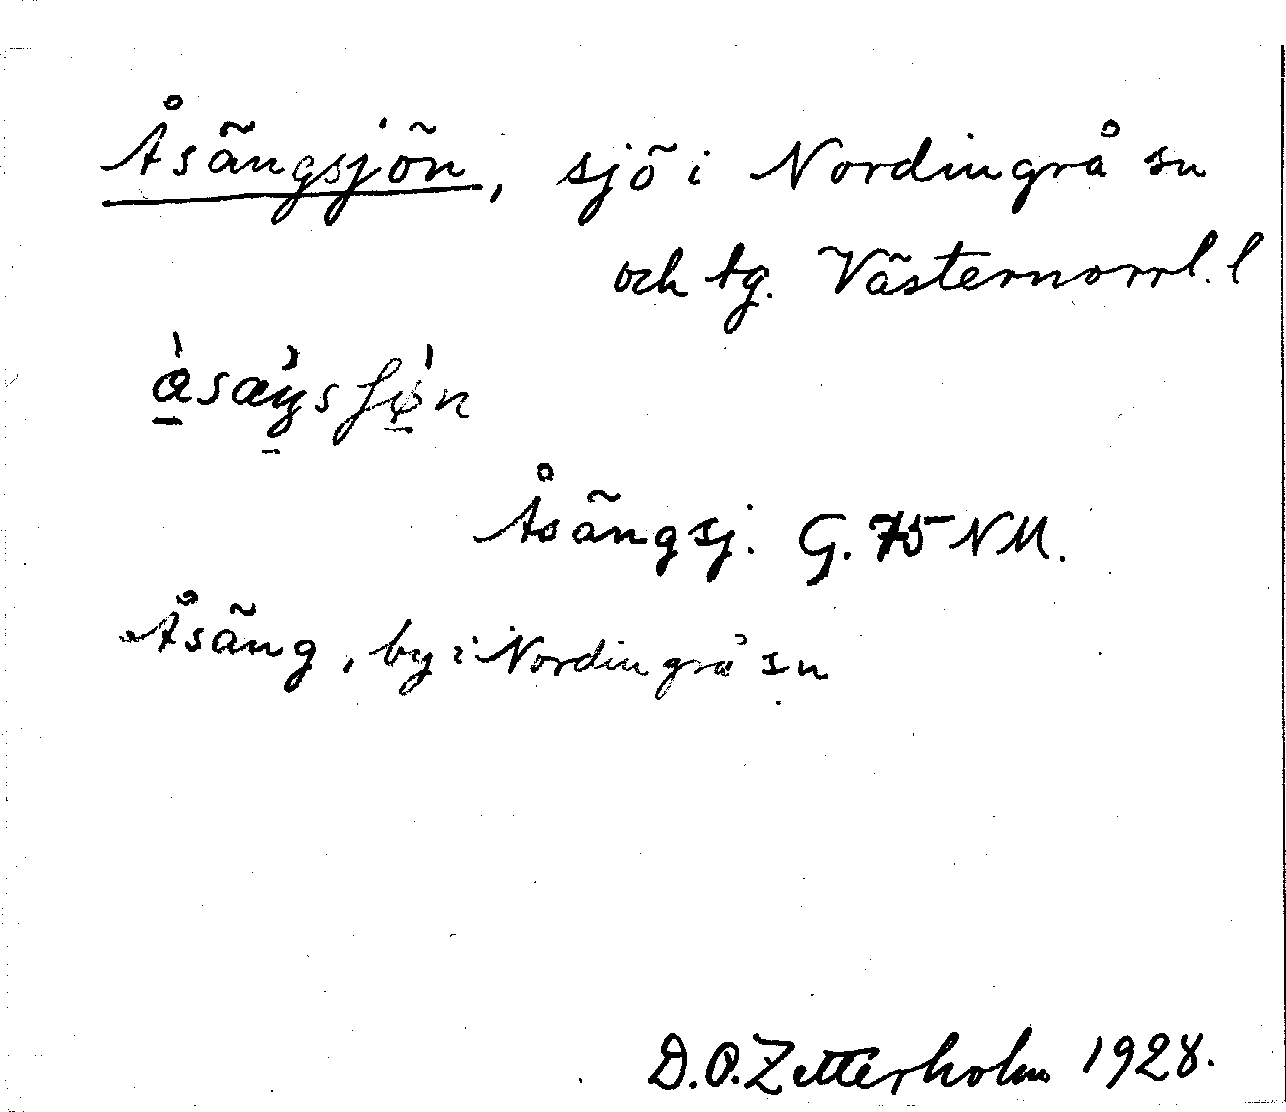 Åsängsjön, sjö i Nordingrå sn
och tg. Västernorrl. l
Åsängsj. G. 75 NM.
Åsäng, by i Nordingrå sn
D.O. Zetterholm 1928.